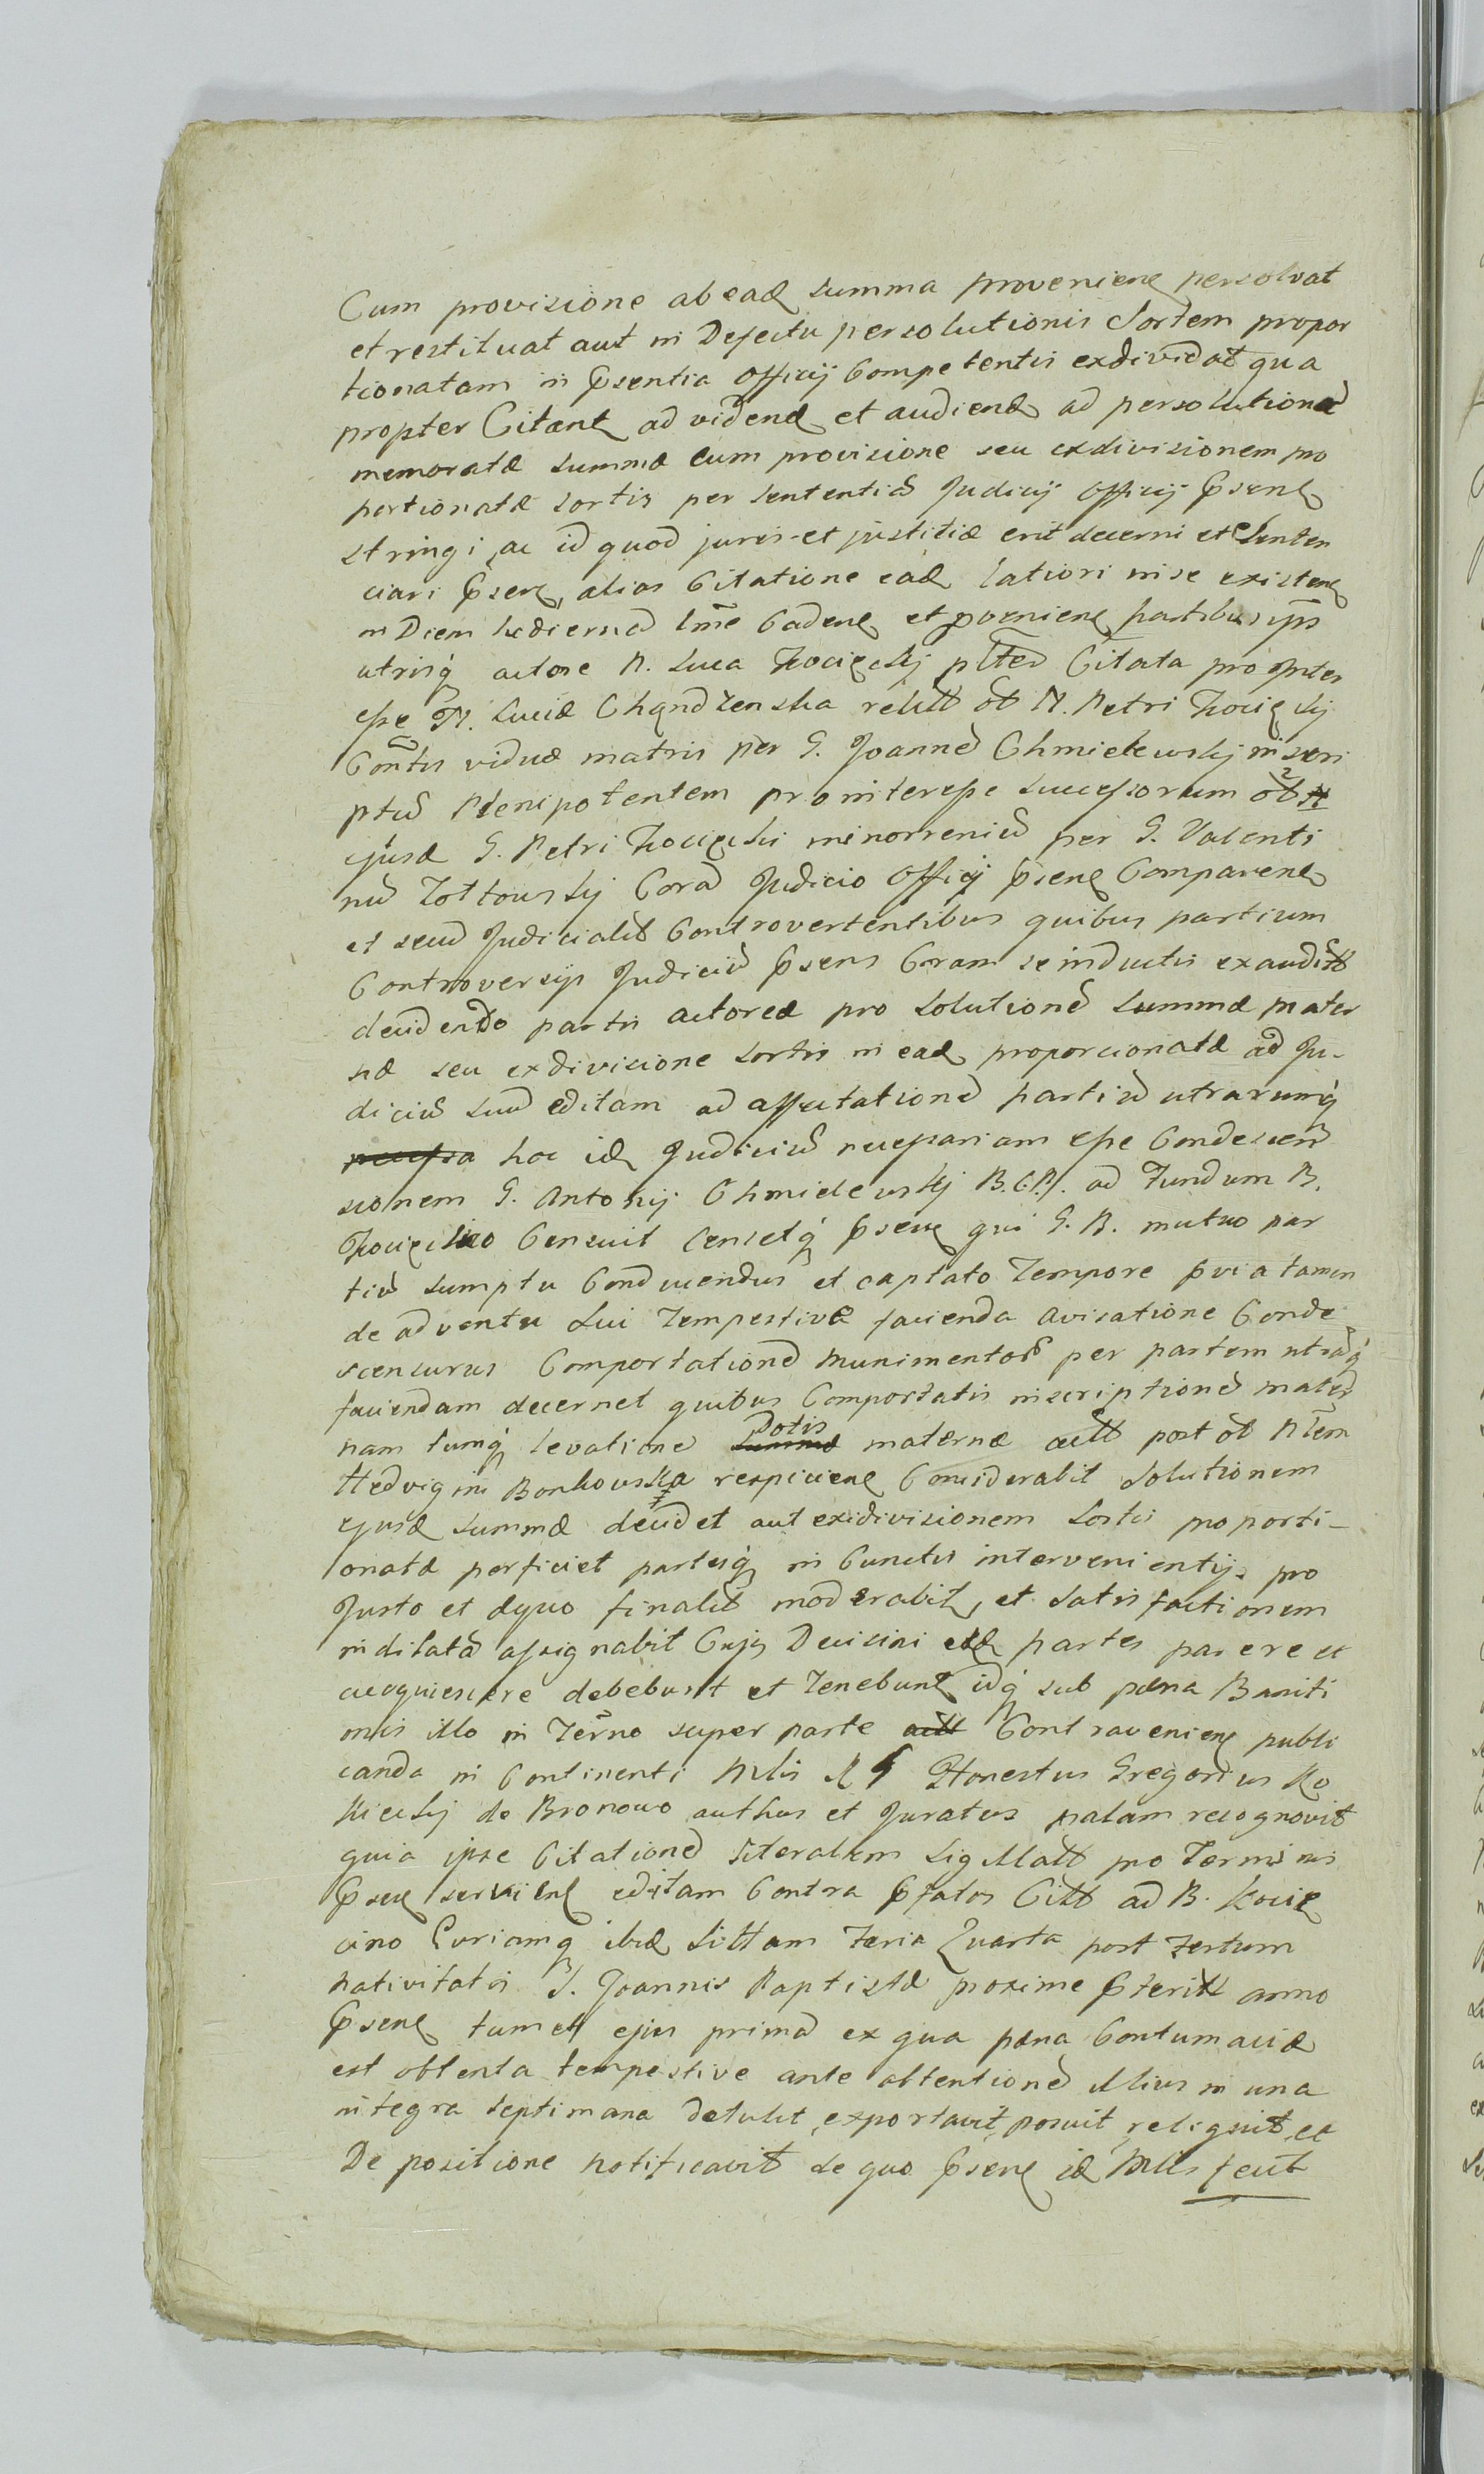 Cum provisione ab ead summa provenien persolvat
et restituat aut in Defectu persolutionis Sortem propor
tionatam in Psentia Officij Competentis exdividat qua
propter Citant ad viden et audien ad persolutione
memoratæ summæ cum provisione seu exdivisionem pro
portionatæ sortis per sententia Judicij Officij Psen
stringi, ac id quod juris et justitiæ erit decerni et Senten
ciari Psen, alias Citatione ead latiori in se existen
in Diem hodierna lme Caden et pvenien partibus ips
utrisq actore N. Luca Kocięckij Citata pro Inter
esse M. Luciæ Chądzenska relict ol N. Petri Kocięckij
Contis viduæ matris per G. Joanne Chmielewskij inscri
ptu Plenipotentem pro interesse successorum ol
ejusd G. Petri Kocięcki minorreniu per G. Valenti
nu Zottowskij Cora Judicio Officij Psen Comparen
et secu Judicialit Controvertentibus quibus partium
Controversijs Judiciu Psens Coram se inductis exaudit
decidendo partis actoreæ pro solutione summæ mater
næ seu exdivisione sortis in ead proporcionatæ ad Ju-
diciu suu editam ad affectatione partiu utrarumq
hoc id Judiciu necessariam esse Condescen
sionem G. Antonij Chmielewskij B.C.P. ad Fundum B.
Kocięcino Censuit Censetq Psen qui G. B. mutuo par
tiu sumptu Conducendus et captato Tempore pvia tamen
de adventu Sui Tempestiva facienda avisatione Conde
scensurus Comportatione Munimentor per partem utraq
faciendam decernet quibus Comportatis inscriptione mater
nam tumq levatione Dotis maternæ actt post ol
Hedvigim Bonkowska respicien Considerabit Solutionem
ejusd summæ decidet aut exdivisionem Sortis proporti-
onatæ perficiet partesq in Cunctis intervenientijs pro
Justo et æquo finalit moderabit, et Satisfactionem
indilata assignabit Cujs Decisini eæd partes parere et
acquiescere debebunt et Tenebunt idq sub pæna Baniti
onis illo in Terno super parte Contravenien publi
canda in Continenti Mlis Honestus Gregorius Ko
kieckij de Bronowo authus et Juratus palam recognovit
quia ipse Citatione literalem Sigillatt pro Terminis
Psen servien editam Contra Pfatos Citt ad B. Kocię
cino Curiamq ibid Sittam Feria Quarta post Festum
Nativitatis S. Joannis Baptistæ proxime Pterit anno
Psen tum et ejus prima ex qua pæna Contumaciæ
est obtenta tempestive ante obtentione illius in una
integra Septimana Detulit, exportavit, posuit, reliquit, et
De positione notificavit de quo Psen id Mlis fecit